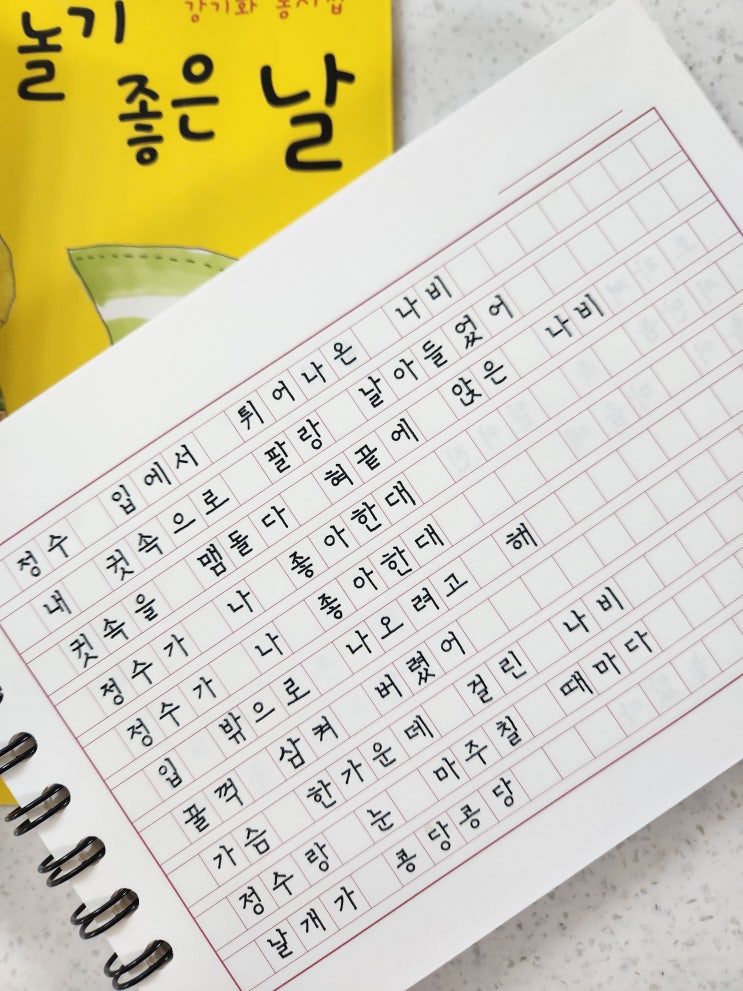 강기화 동시집
놀기
좋은 날
정수 입에서 튀어나온 나비
내 귓속으로 팔랑 날아들었어
귓속을 맴돌다 혀끝에 앉은 나비
정수가 나 좋아한대
정수가 나 좋아한대
입 밖으로 나오려고 해
꿀꺽 삼켜 버렸어
가슴 한가운데 걸린 나비
정수랑 눈 마주칠 때마다
날개가 콩당콩당